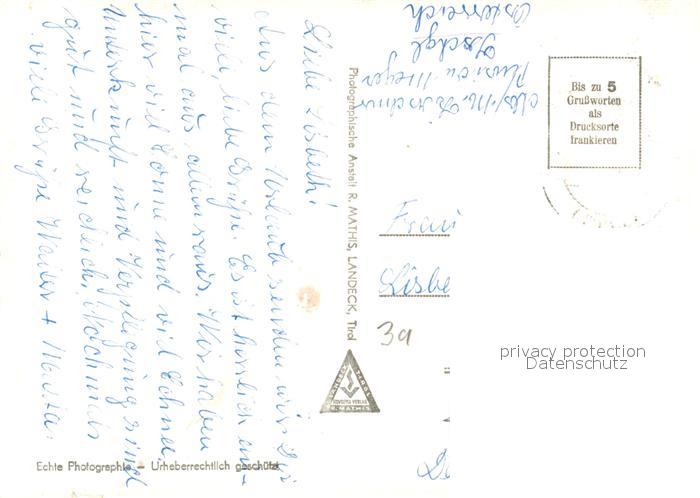 Liebe Lisbeth!
Aus dem Urlaub senden wir Dir
viele liebe Grüße. Es ist herrlich ein-
mal aus allem raus. Wir haben
hier viel Sonne und viel Schnee.
Unterkunft und Verpflegung sind
gut und reichlich. Nochmals
viele Grüße Walter + Marta.
Pension Meyer
Ischgl
Österreich
Photographische Anstalt R. MATHIS, LANDECK, Tirol
Bis zu 5
Grußworten
als
Drucksorte
frankieren
Frau
Lisbe
3a
R. MATHIS
De
privacy protection
Datenschutz
Echte Photographie – Urheberrechtlich geschützt